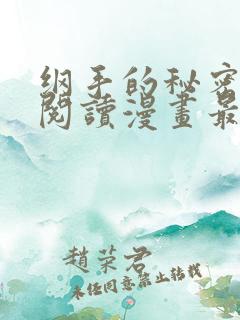 纲手的秘密
閱讀漫畫最
趙荣君
未任同意禁止转载